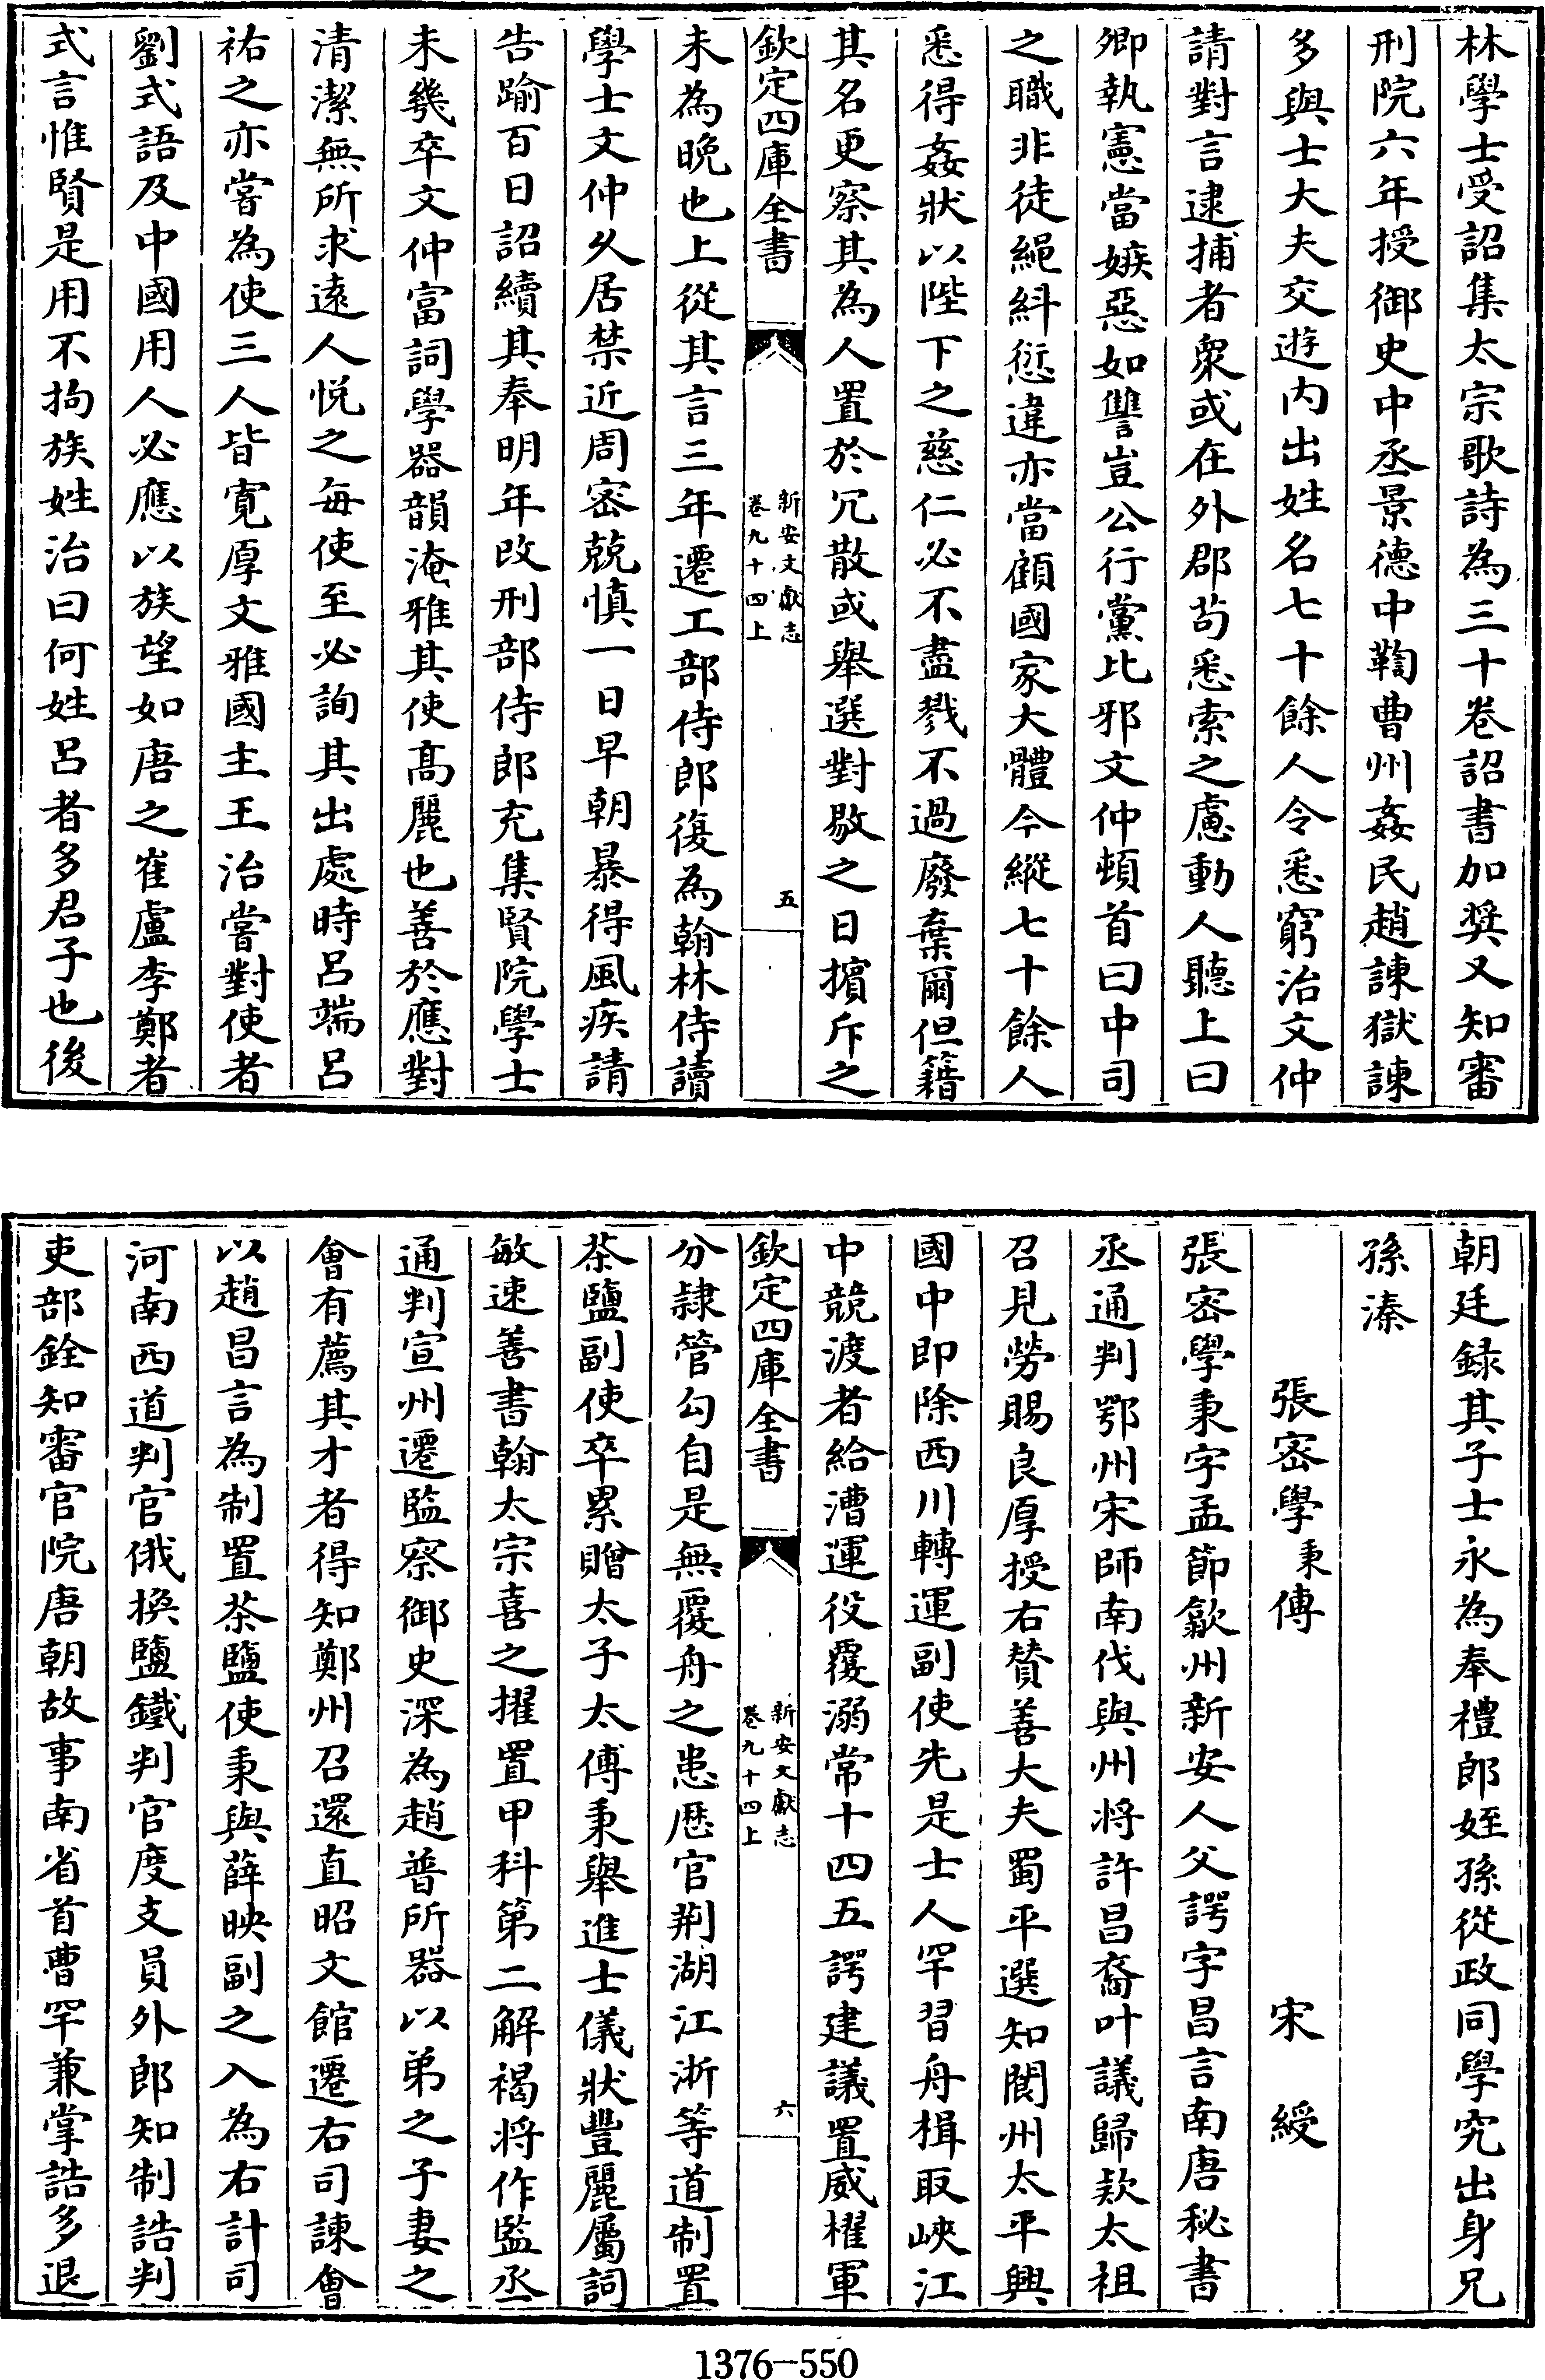 林學士受詔集太宗歌詩為三十卷詔書加奨又知審
刑院六年授御史中丞景德中鞫曹州姦民趙諫獄諫
多與士大夫交遊内出姓名七十餘人令悉窮治文仲
請對言逮捕者衆或在外郡茍悉索之慮動人聽上曰
卿執憲當嫉惡如讐豈公行黨比邪文仲頓首曰中司
之職非徒繩糾愆違亦當顧國家大體今縱七十餘人
悉得姦狀以陛下之慈仁必不盡戮不過廢棄爾但籍
其名更察其為人置於冗散或舉選對敭之日擯斥之
欽定四庫全書
新安文獻志
卷九十四上
五
未為晚也上從其言三年遷工部侍郎復為翰林侍讀
學士文仲久居禁近周密兢慎一日早朝暴得風疾請
告踰百日詔續其奉明年改刑部侍郎充集賢院學士
未幾卒文仲富詞學器韻淹雅其使髙麗也善於應對
清潔無所求遠人悦之每使至必詢其出處時呂端呂
祐之亦嘗為使三人皆寛厚文雅國主王治嘗對使者
劉式語及中國用人必應以族望如唐之崔盧李鄭者
式言惟賢是用不拘族姓治曰何姓呂者多君子也後
朝廷録其子士永為奉禮郎姪孫從政同學究出身兄
孫溱
張密學秉傳 宋 綬
張密學秉字孟節歙州新安人父諤字昌言南唐秘書
丞通判鄂州宋師南伐與州將許昌裔叶議歸款太祖
召見勞賜良厚授右賛善大夫蜀平選知閬州太平興
國中即除西川轉運副使先是士人罕習舟楫取峽江
中競渡者給漕運役覆溺常十四五諤建議置威櫂軍
欽定四庫全書
新安文獻志
卷九十四上
六
分隷管勾自是無覆舟之患歴官荆湖江浙等道制置
茶鹽副使卒累贈太子太傅秉舉進士儀狀豐麗屬詞
敏速善書翰太宗喜之擢置甲科第二解褐將作監丞
通判宣州遷監察御史深為趙普所器以弟之子妻之
會有薦其才者得知鄭州召還直昭文館遷右司諫會
以趙昌言為制置茶鹽使秉與薛映副之入為右計司
河南西道判官俄換鹽鐵判官度支員外郎知制誥判
吏部銓知審官院唐朝故事南省首曹罕兼掌誥多退
1376-550